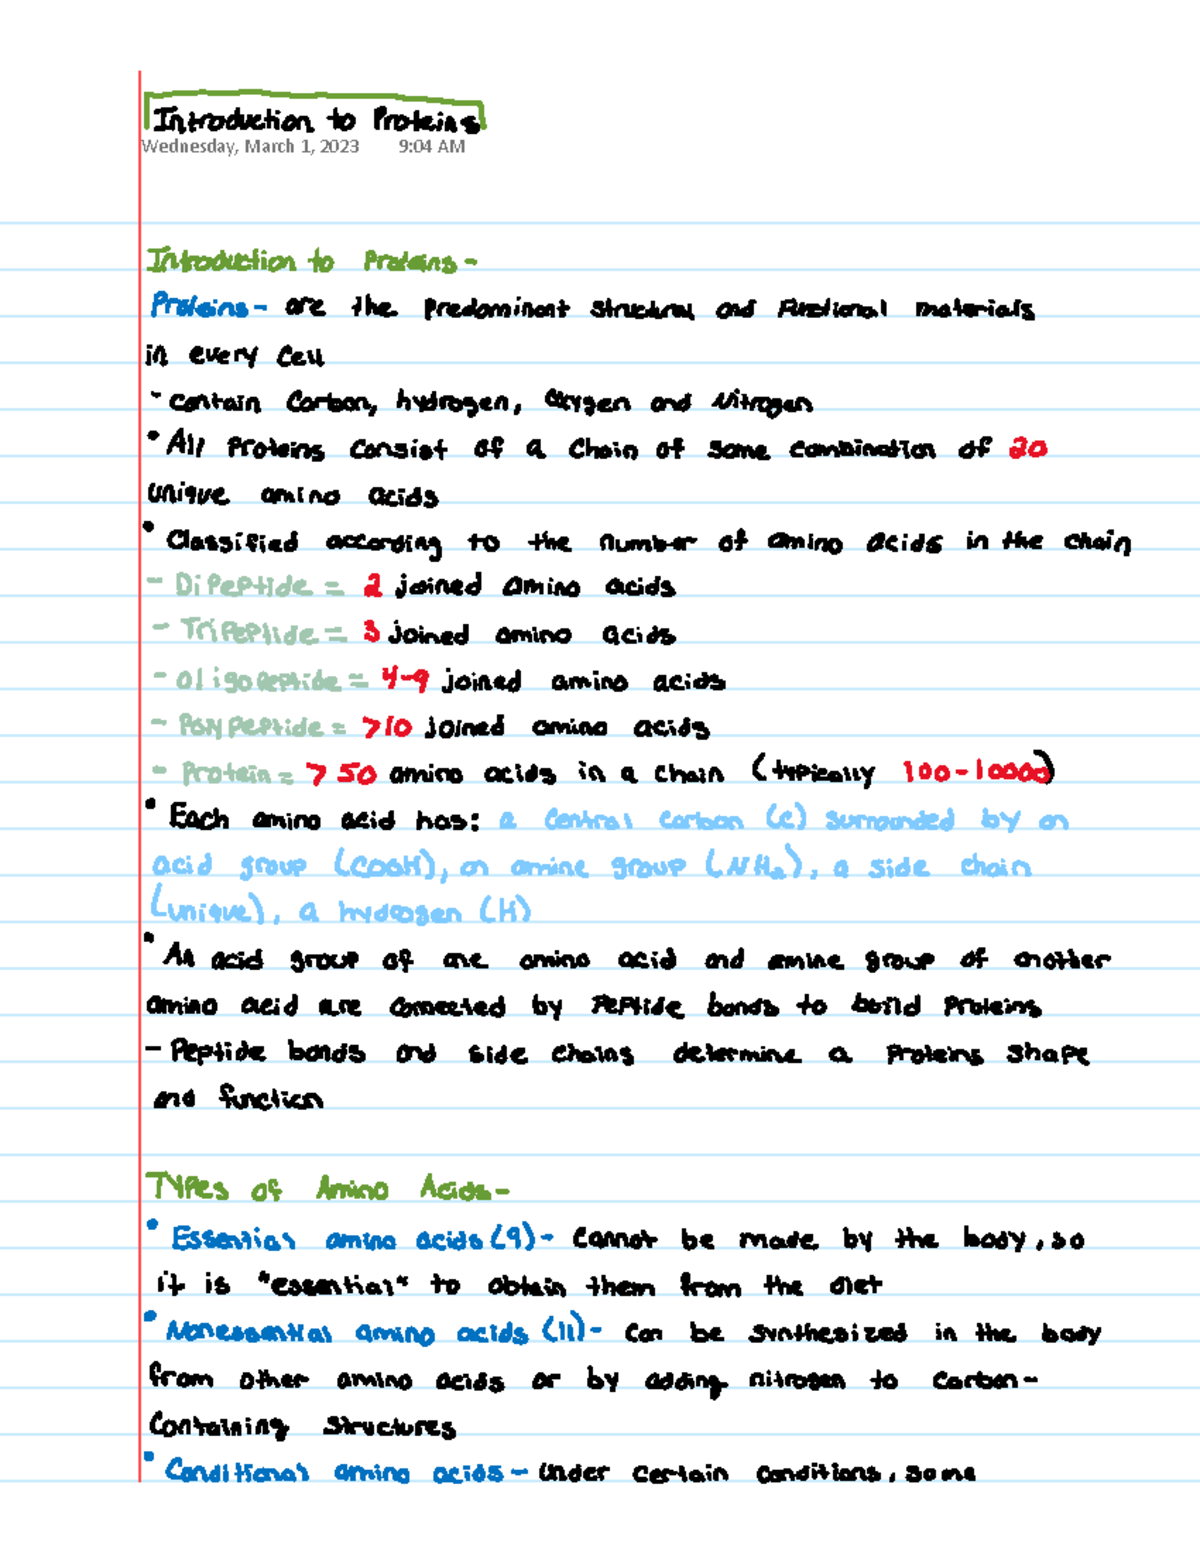 Introduction to Proteins
Wednesday, March 1, 2023 9:04 AM
Introduction to Proteins -
Proteins - are the predominant structural and functional materials
in every cell
- contain carbon, hydrogen, oxygen and Nitrogen
• All proteins consist of a chain of some combination of 20
unique amino acids
• Classified according to the number of amino acids in the chain
- Dipeptide = 2 joined amino acids
- Tripeptide = 3 joined amino acids
- oligopeptide = 4-9 joined amino acids
- Polypeptide = >10 joined amino acids
- Protein = > 50 amino acids in a chain (typically 100-10000)
• Each amino acid has: a central carbon (C) surrounded by an
acid group (COOH), an amine group (NH₂), a side chain
(unique), a hydrogen (H)
• An acid group of one amino acid and amine group of another
amino acid are connected by peptide bonds to build proteins
- Peptide bonds and side chains determine a proteins shape
and function
Types of Amino Acids -
• Essential amino acids (9) - Cannot be made by the body, so
it is "essential" to obtain them from the diet
• Nonessential amino acids (11) - can be synthesized in the body
from other amino acids or by adding nitrogen to carbon-
containing structures
• Conditional amino acids - under certain conditions, some